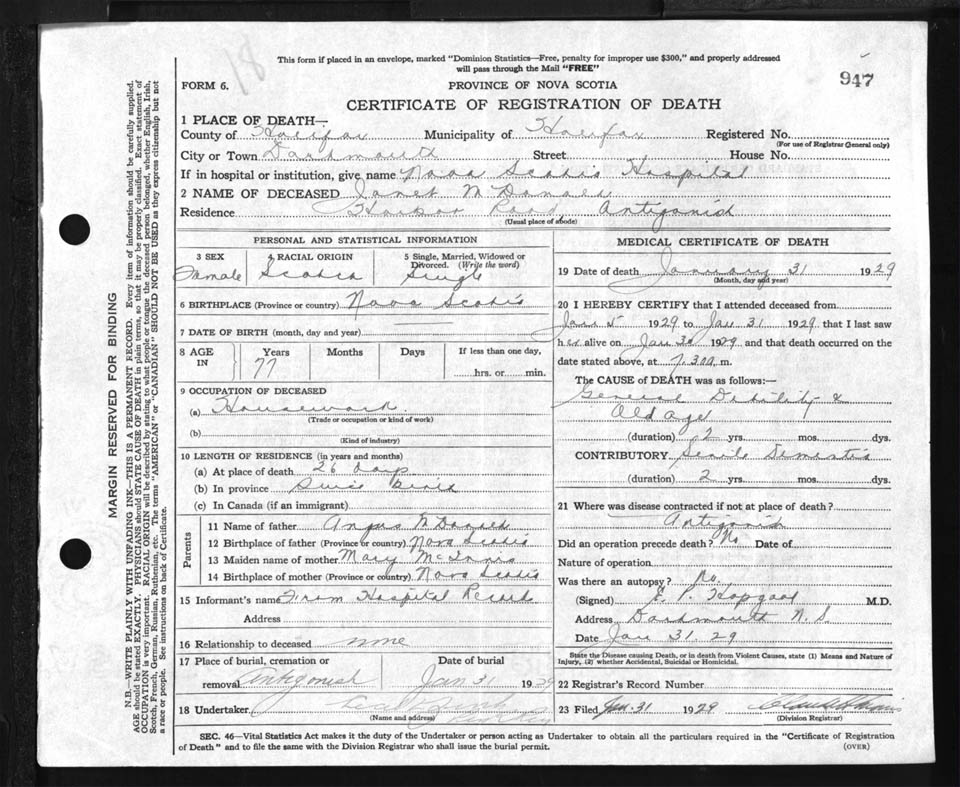 This form if placed in an envelope, marked "Dominion Statistics—Free, penalty for improper use $300," and properly addressed
will pass through the Mail "FREE"
947
FORM 6.
PROVINCE OF NOVA SCOTIA
CERTIFICATE OF REGISTRATION OF DEATH
1 PLACE OF DEATH—
County of Halifax Municipality of Halifax Registered No.
(For use of Registrar General only)
City or Town Dartmouth Street House No.
If in hospital or institution, give name Nova Scotia Hospital
2 NAME OF DECEASED Janet McDonald
Residence Harbor Road Antigonish
(Usual place of abode)
PERSONAL AND STATISTICAL INFORMATION
3 SEX 4 RACIAL ORIGIN 5 Single, Married, Widowed or
Divorced. (Write the word)
Female Scotch Single
6 BIRTHPLACE (Province or country) Nova Scotia
7 DATE OF BIRTH (month, day and year)
8 AGE IN Years Months Days If less than one day,
77 hrs. or min.
9 OCCUPATION OF DECEASED
(a) Housework
(Trade or occupation or kind of work)
(b)
(Kind of industry)
10 LENGTH OF RESIDENCE (in years and months)
(a) At place of death 26 days
(b) In province Since birth
(c) In Canada (if an immigrant)
Parents
11 Name of father Angus McDonald
12 Birthplace of father (Province or country) Nova Scotia
13 Maiden name of mother Mary McInnis
14 Birthplace of mother (Province or country) Nova Scotia
15 Informant's name From Hospital Record
Address
16 Relationship to deceased none
17 Place of burial, cremation or Date of burial
removal Antigonish Jan 31 1929
18 Undertaker
(Name and address)
MEDICAL CERTIFICATE OF DEATH
19 Date of death January 31 1929
(Month, day and year)
20 I HEREBY CERTIFY that I attended deceased from
Jan 5 1929 to Jan 31 1929 that I last saw
her alive on Jan 30 1929 and that death occurred on the
date stated above, at 7.30 a. m.
The CAUSE of DEATH was as follows:—
General Debility &
Old Age
(duration) 2 yrs. mos. dys.
CONTRIBUTORY Senile Dementia
(duration) 2 yrs. mos. dys.
21 Where was disease contracted if not at place of death?
Antigonish
Did an operation precede death? No Date of
Nature of operation
Was there an autopsy? No.
(Signed) E. P. Hopgood M.D.
Address Dartmouth N.S.
Date Jan 31 29
State the Disease causing Death, or in death from Violent Causes, state (1) Means and Nature of
Injury, (2) whether Accidental, Suicidal or Homicidal.
22 Registrar's Record Number
23 Filed Jan. 31 1929
(Division Registrar)
SEC. 46—Vital Statistics Act makes it the duty of the Undertaker or person acting as Undertaker to obtain all the particulars required in the "Certificate of Registration
of Death" and to file the same with the Division Registrar who shall issue the burial permit.
(OVER)
MARGIN RESERVED FOR BINDING
N.B.—WRITE PLAINLY WITH UNFADING INK—THIS IS A PERMANENT RECORD. Every item of information should be carefully supplied.
AGE should be stated EXACTLY. PHYSICIANS should STATE CAUSE OF DEATH in plain terms, so that it may be properly classified. Exact statement of
OCCUPATION is very important. RACIAL ORIGIN will be described by stating to what people or tongue the deceased person belonged, whether English, Irish,
Scotch, French, German, Russian, Ruthenian, etc. The terms "AMERICAN" or "CANADIAN" SHOULD NOT BE USED as they express citizenship but not
a race or people. See instructions on back of Certificate.